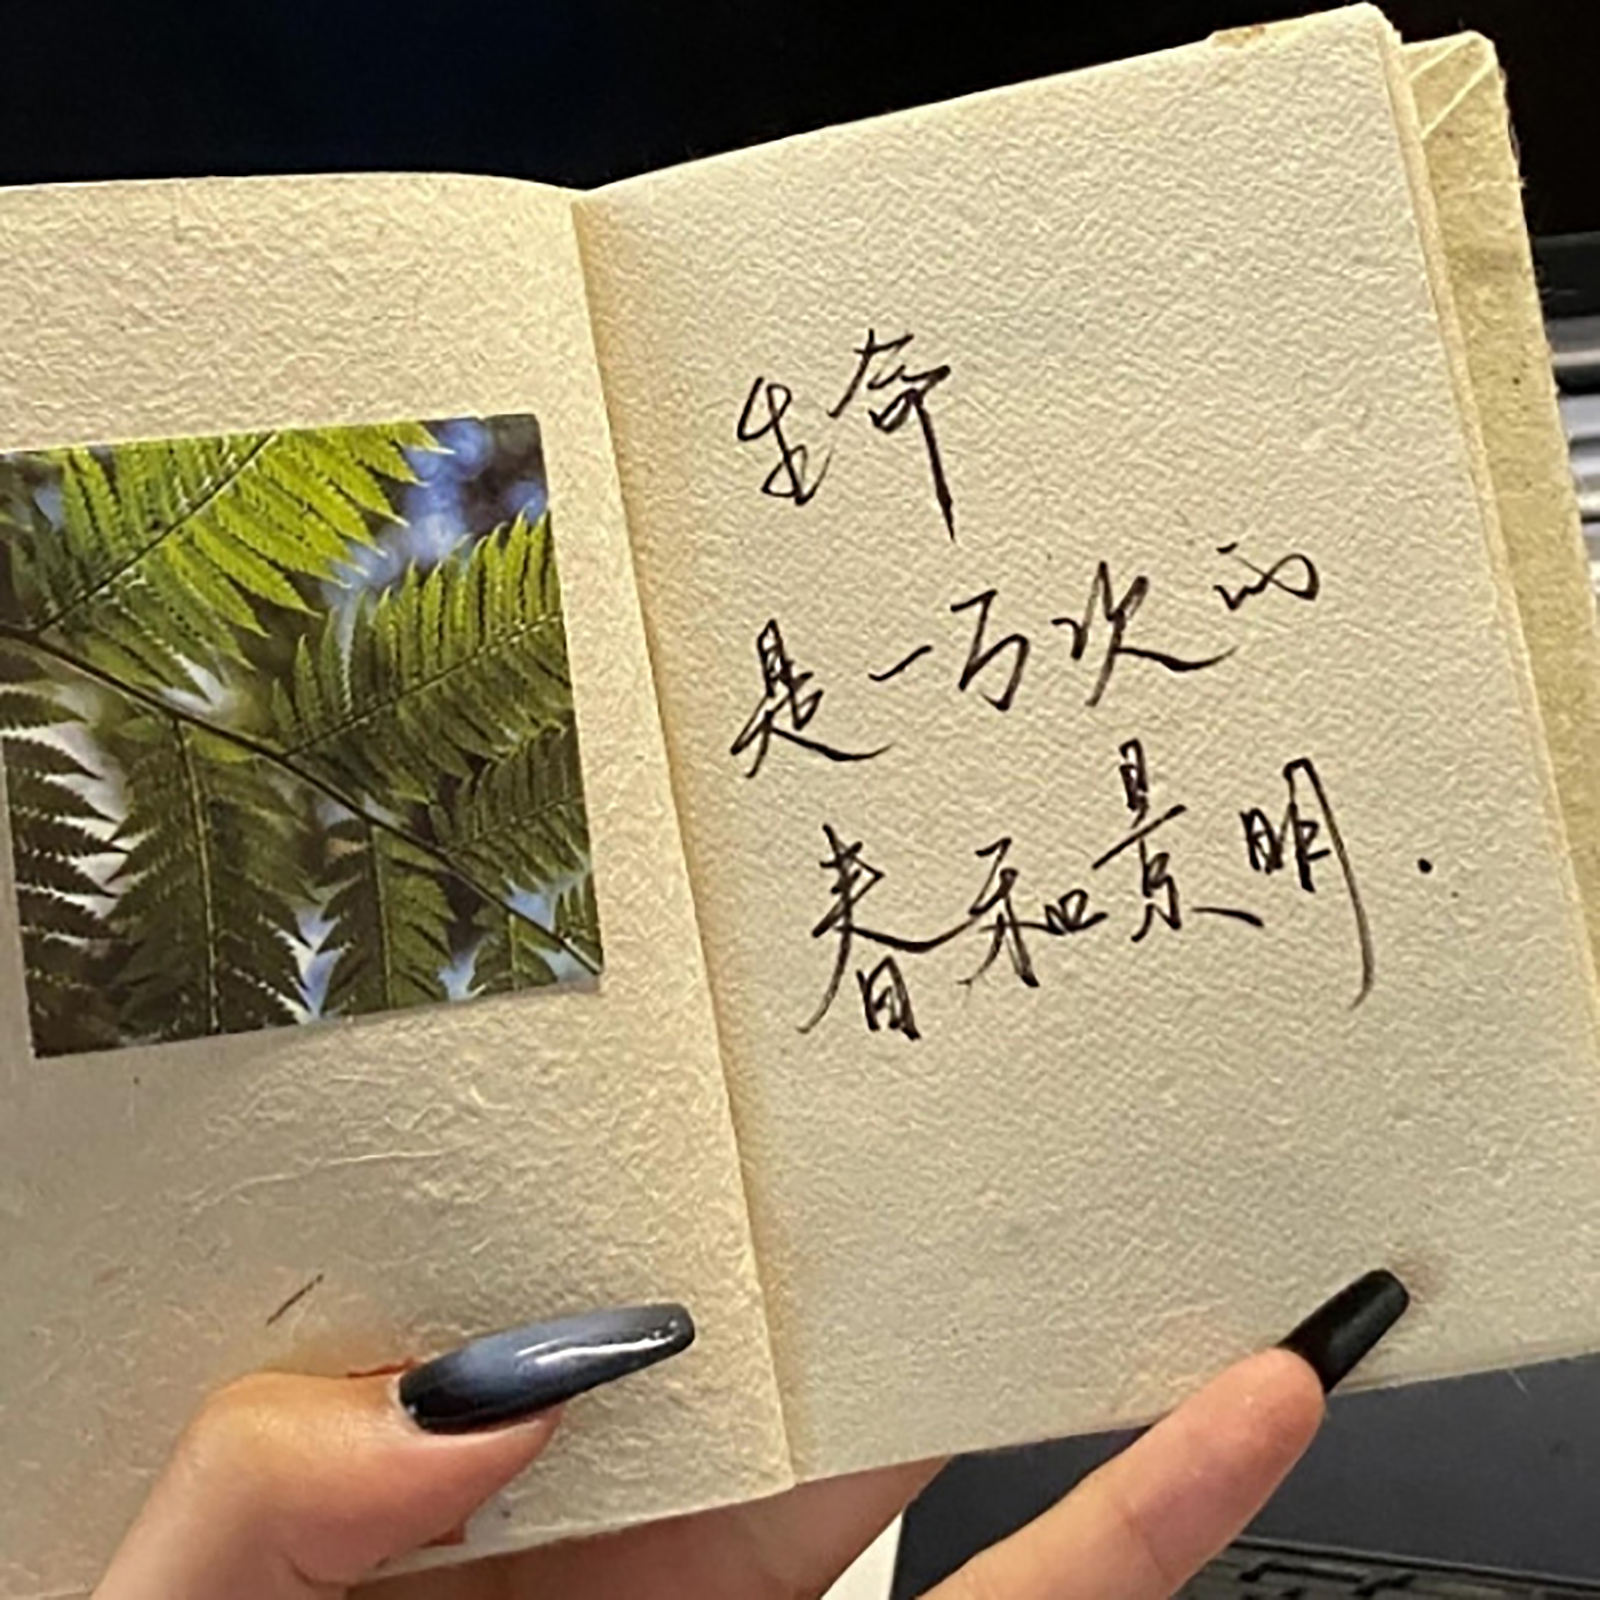 生命
是一万次的
春和景明.